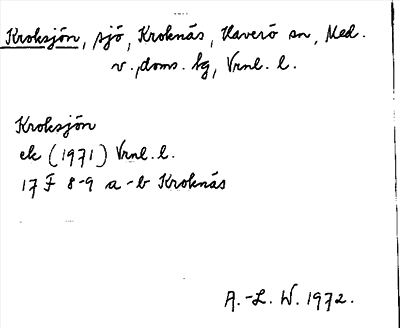 Kroksjön, sjö, Kroknäs, Haverö sn, Med.
v. doms. hg, Vrnl. l.
Kroksjön
ek (1971) Vrnl. l.
17 F 8-9 a-b Kroknäs
A.-L. W. 1972.